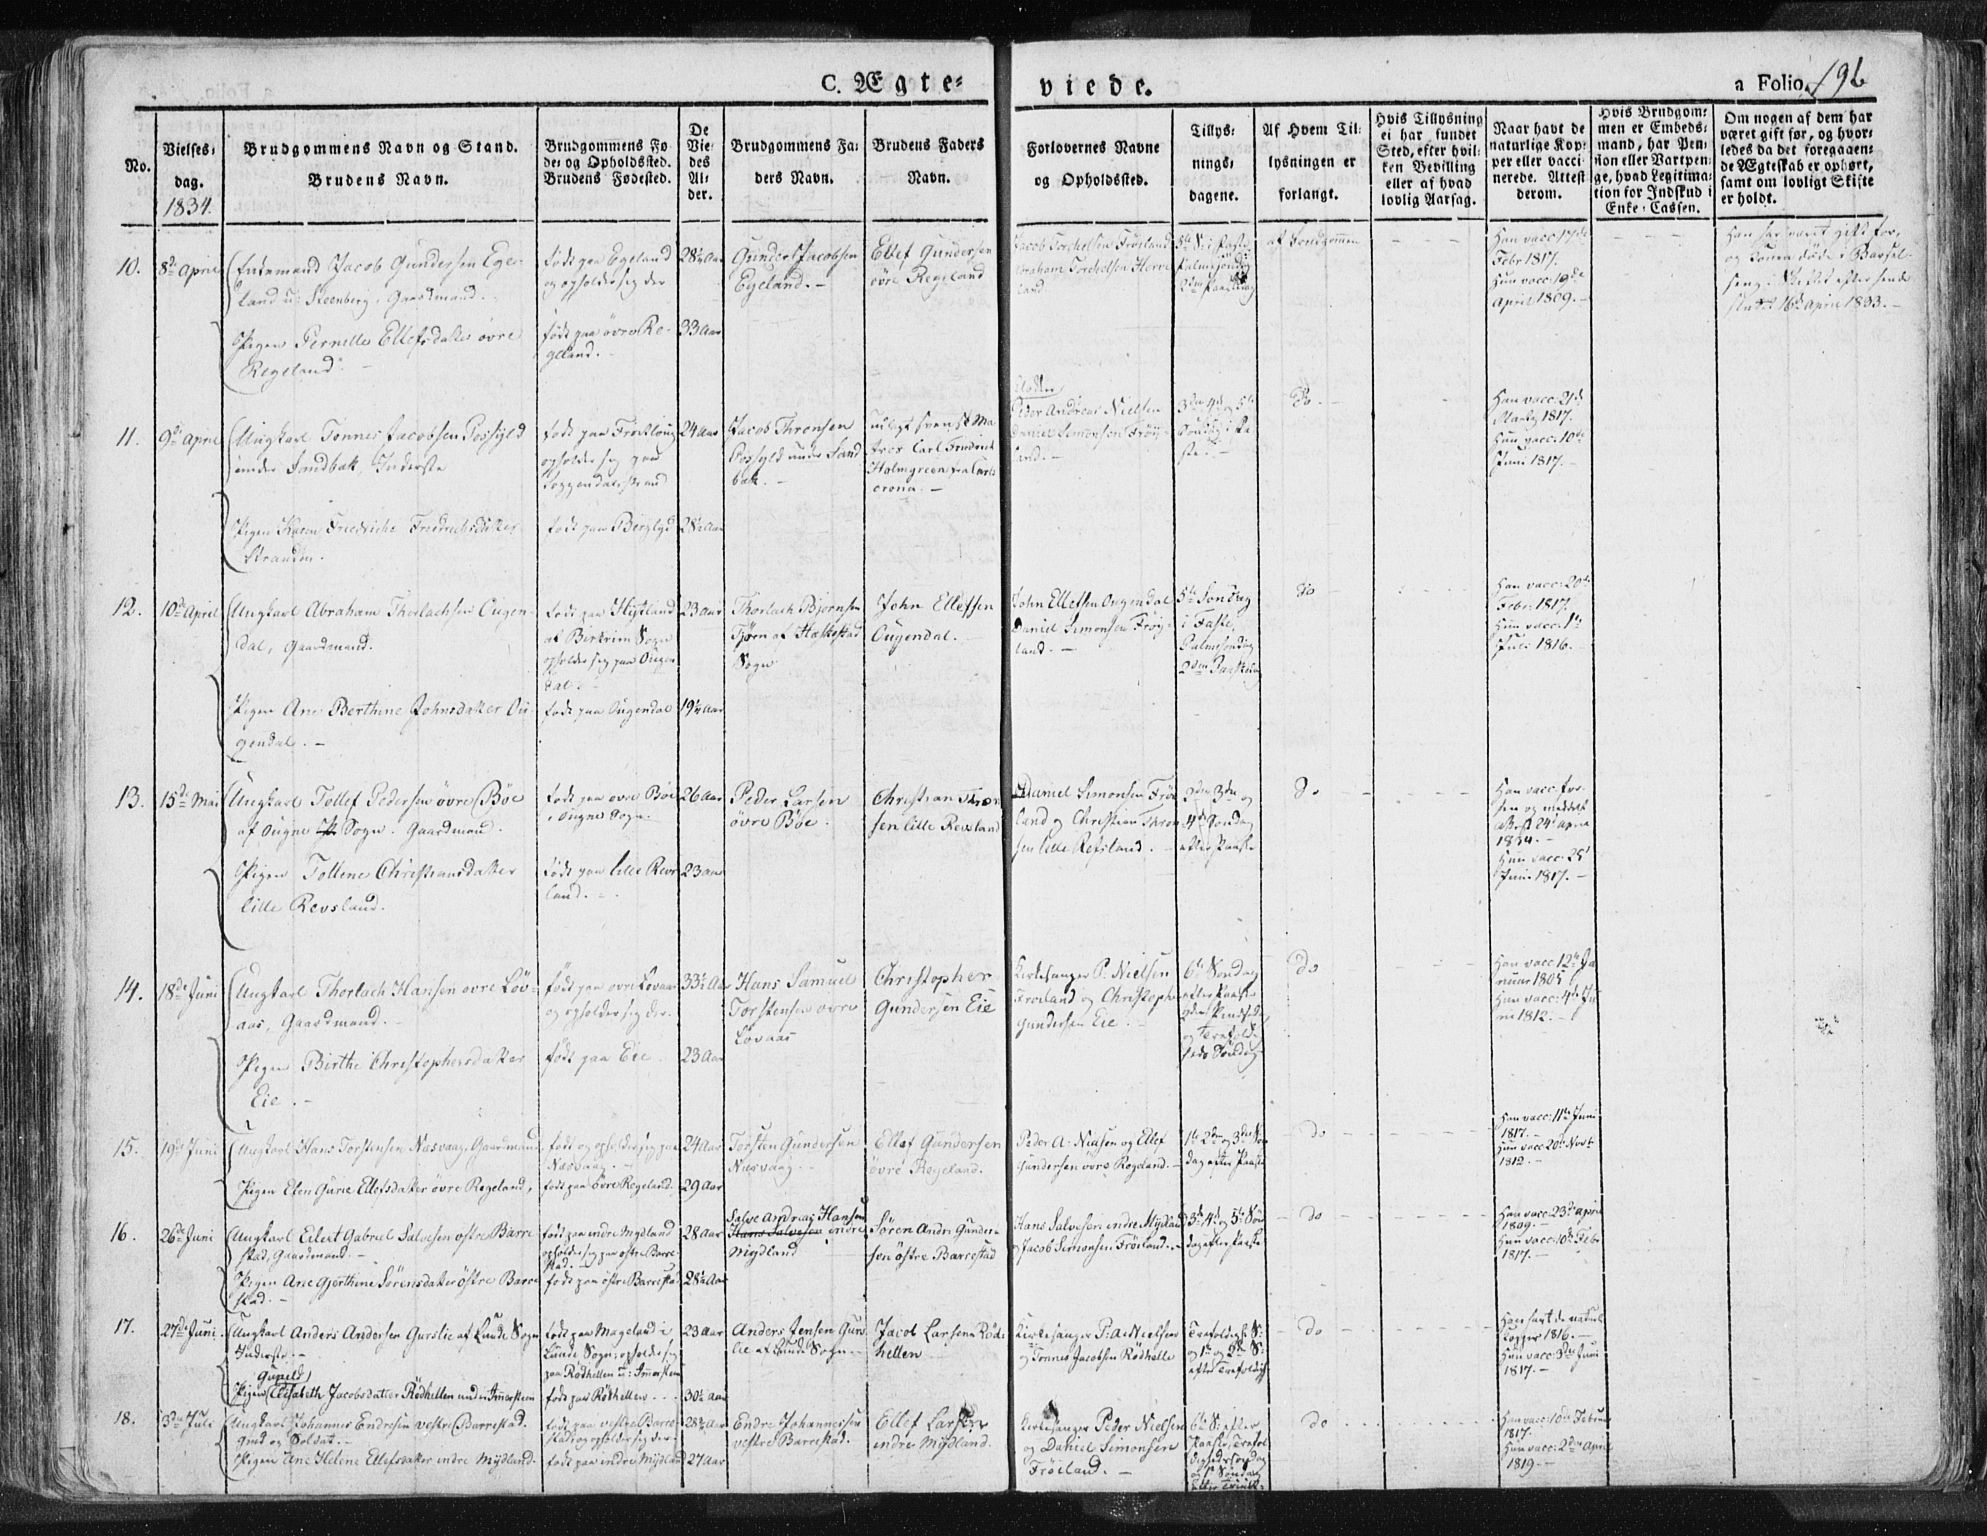 C. Ægte-
viede.
a Folio. 196
No.
Vielses-
dag.
1834.
Brudgommens Navn og Stand.
Brudens Navn.
Brudgommens Fø-
de- og Opholdssted.
Brudens Fødested.
De
Vie-
des
Al-
der.
Brudgommens Fa-
ders Navn.
Brudens Faders
Navn.
Forlovernes Navne
og Opholdssted.
Tillys-
nings-
dagene.
Af Hvem Til-
lysningen er
forlangt.
Hvis Tillysning
ei har fundet
Sted, efter hvil-
ken Bevilling
eller af hvad
lovlig Aarsag.
Naar havt de
naturlige Kop-
per eller vacci-
nerede. Attest
derom.
Hvis Brudgom-
men er Embeds-
mand, har Pen-
sion eller Vartpen-
ge, hvad Legitima-
tion for Indskud i
Enke-Cassen.
Om nogen af dem har
været gift før, og hvor-
ledes da det foregaaen-
de Ægteskab er ophørt,
samt om lovligt Skifte
er holdt.
10.
8de April
Enkemand Jacob Gundersen Ege-
land u: Steenberg, Gaardmand.
Pigen Pernille Ellefsdatter øvre
Regeland
født paa Egeland
og opholder sig der
født paa øvre Re-
geland.
28½ Aar
33 Aar
Gunder Jacobsen
Egeland.
Ellef Gundersen
øvre Regeland
Jacob Torchelsen Frøiland
Abraham Torchelsen Herve
land
5te S: i Faste
Palmesøndag
2den Paaskedag
af Brudgommen
Han vacc: 17de
Febr 1817.
Hun vacc: 19de
April 1809.
Han har været gift før,
og Konen døde i Barsel-
seng. Skiftet efter hende
sluttet 16de April 1833.
11.
9de April
Ungkarl Tønnes Jacobsen Possyld
under Sandbæk, Inderste
Pigen Karen Friedriche Fredrichsdatter
Stranden.
opholder sig paa
Soggendalstrand
født paa Berglyd
24 Aar
28½ Aar
Jacob Thronsen
Possyld under Sand
bæk.
udlagt svensk Ma
tros Carl Friedrich
Holmgreen fra Carls
crona.
Klokker
Peder Andreas Nielsen
Daniel Simonsen Frøy-
land.
3den 4de og 5te
Søndag i Fa
ste.
Do.
Han vacc: 21de
Martz 1817.
Hun vacc: 10de
Juni 1817.
12.
10de April
Ungkarl Abraham Thorlachsen Ougen-
dal, Gaardmand.
Pigen Ane Berthine Johnsdatter Ou
gendal.
født paa Hytland
af Bierkrim Sogn
opholder sig paa Ougen
dal.
født paa Ougendal
23 Aar
19½ Aar
Thorlach Bjørnsen
Tjørn af Heskestad
Sogn
John Ellefsen
Ougendal.
John Ellefsen Ougendal
Daniel Simonsen Frøy-
land.
5te Søndag
i Faste,
Palmesøndag
2den Paaskedag
Do
Han vacc: 20de
Febr: 1817.
Hun vacc: 1te
Juli 1816.
13.
15de Mai
Ungkarl Tollef Pedersen øvre Bøe
af Ougne Sogn. Gaardmand.
Pigen Tolline Christiansdatter
lille Revsland.
født paa øvre Bøe
i Ougne Sogn.
født paa lille Revs
land.
26 Aar
23 Aar
Peder Larsen
øvre Bøe.
Christian Thron
sen lille Revsland
Daniel Simonsen Frøi
land og Christian Thron
sen lille Refsland.
2den 3die og
4de Søndag
efter Paaske
Do
1834.
Hun vacc: 25
Juni 1817.
14.
18de Juni
Ungkarl Thorlach Hansen øvre Løv-
aas, Gaardmand.
Pigen Birthe Christophersdatter
Eie.
født paa øvre Løvaas
og opholder sig der.
født paa Eie.
33½ Aar
23 Aar
Hans Samuel
Torstensen øvre
Løvaas
Christopher
Gundersen Eie
Kirkesanger P: Nielsen
Frøiland og Christopher
Gundersen Eie.
6te Søndag
efter Paaske
2den Pindsedag
og Trefoldig
heds Søndag
Do
Han vacc 12te Ja
nuar 1805
Hun vacc: 4de Ju
ni 1812.
15.
19de Juni
Ungkarl Hans Torstensen Nesvaag, Gaardmand
Pigen Elen Gurie Ellefsdatter øvre Regeland,
født og opholder sig paa
Nesvaag.
født paa øvre Regeland.
24 Aar
29 Aar
Torsten Gundersen
Nesvaag.
Ellef Gundersen
øvre Regeland.
Peder A: Nielsen og Ellef
Gundersen øvre Regeland.
1te 2den og 3die Søn
dag efter Paaske
do
Han vacc: 11te Juni
1817.
Hun vacc: 20de Novb
1812.
16.
26de Juni
Ungkarl Eilert Gabriel Salvesen østre Barre
stad, Gaardmand.
Pigen Ane Gjorthine Sørensdatter østre Barre
stad.
født paa indre Mydland
opholder sig paa østre Barre-
stad.
født paa østre Barrestad
28 Aar
28½ Aar
Salve Andreas Hansen
Hans Salvesen indre
Mydland
Søren Andr: Gunder-
sen østre Barrestad
Hans Salvesen indre Mydland
og Jacob Simonsen Frøiland.
3de 4de og 5te Søn
dag efter Paaske
do
Han vacc: 23de April
1809.
Hun vacc: 10de Febr
1817.
17.
27de Juni
Ungkarl Anders Andersen Gurslie af Lunde Sogn
Inderste.
Gunild
Pigen Elisabeth Jacobsdatter Rødhellen under Immersteen
født paa Mageland i
Lunde Sogn, opholder sig
paa Rødhellen u: Immersteen
født paa Rødhellen
23 Aar
30½ Aar
Anders Jensen Gurs
lie af Lunde Sogn
Jacob Larsen Rød-
hellen
Kirkesanger P: A: Nielsen
og Tønnes Jacobsen Rødhelle
Trefoldigh S:
og 1te og 2den S:
efter Trefoldigh
do
Han havt de naturl
Kopper 1816.
Hun vacc: 3die Juni
1817.
18.
3die Juli
Ungkarl Johannes Endresen vestre Barrestad.
Pigen Ane Helene Ellefsdatter indre Mydland.
født paa vestre Barre-
stad og opholder sig der.
født paa indre Mydland
28¾ Aar
27 Aar
Endre Johannessen
vestre Barrestad.
Ellef Larsen
indre Mydland.
Kirkesanger Peder Nielsen
og Daniel Simonsen
Frøiland.
6te S: efter
Paaske, Trefol
digheds søndag
og 1te Søndag
do
Han vacc: 10de Februar
1817.
Hun vacc: 2den April
1819.